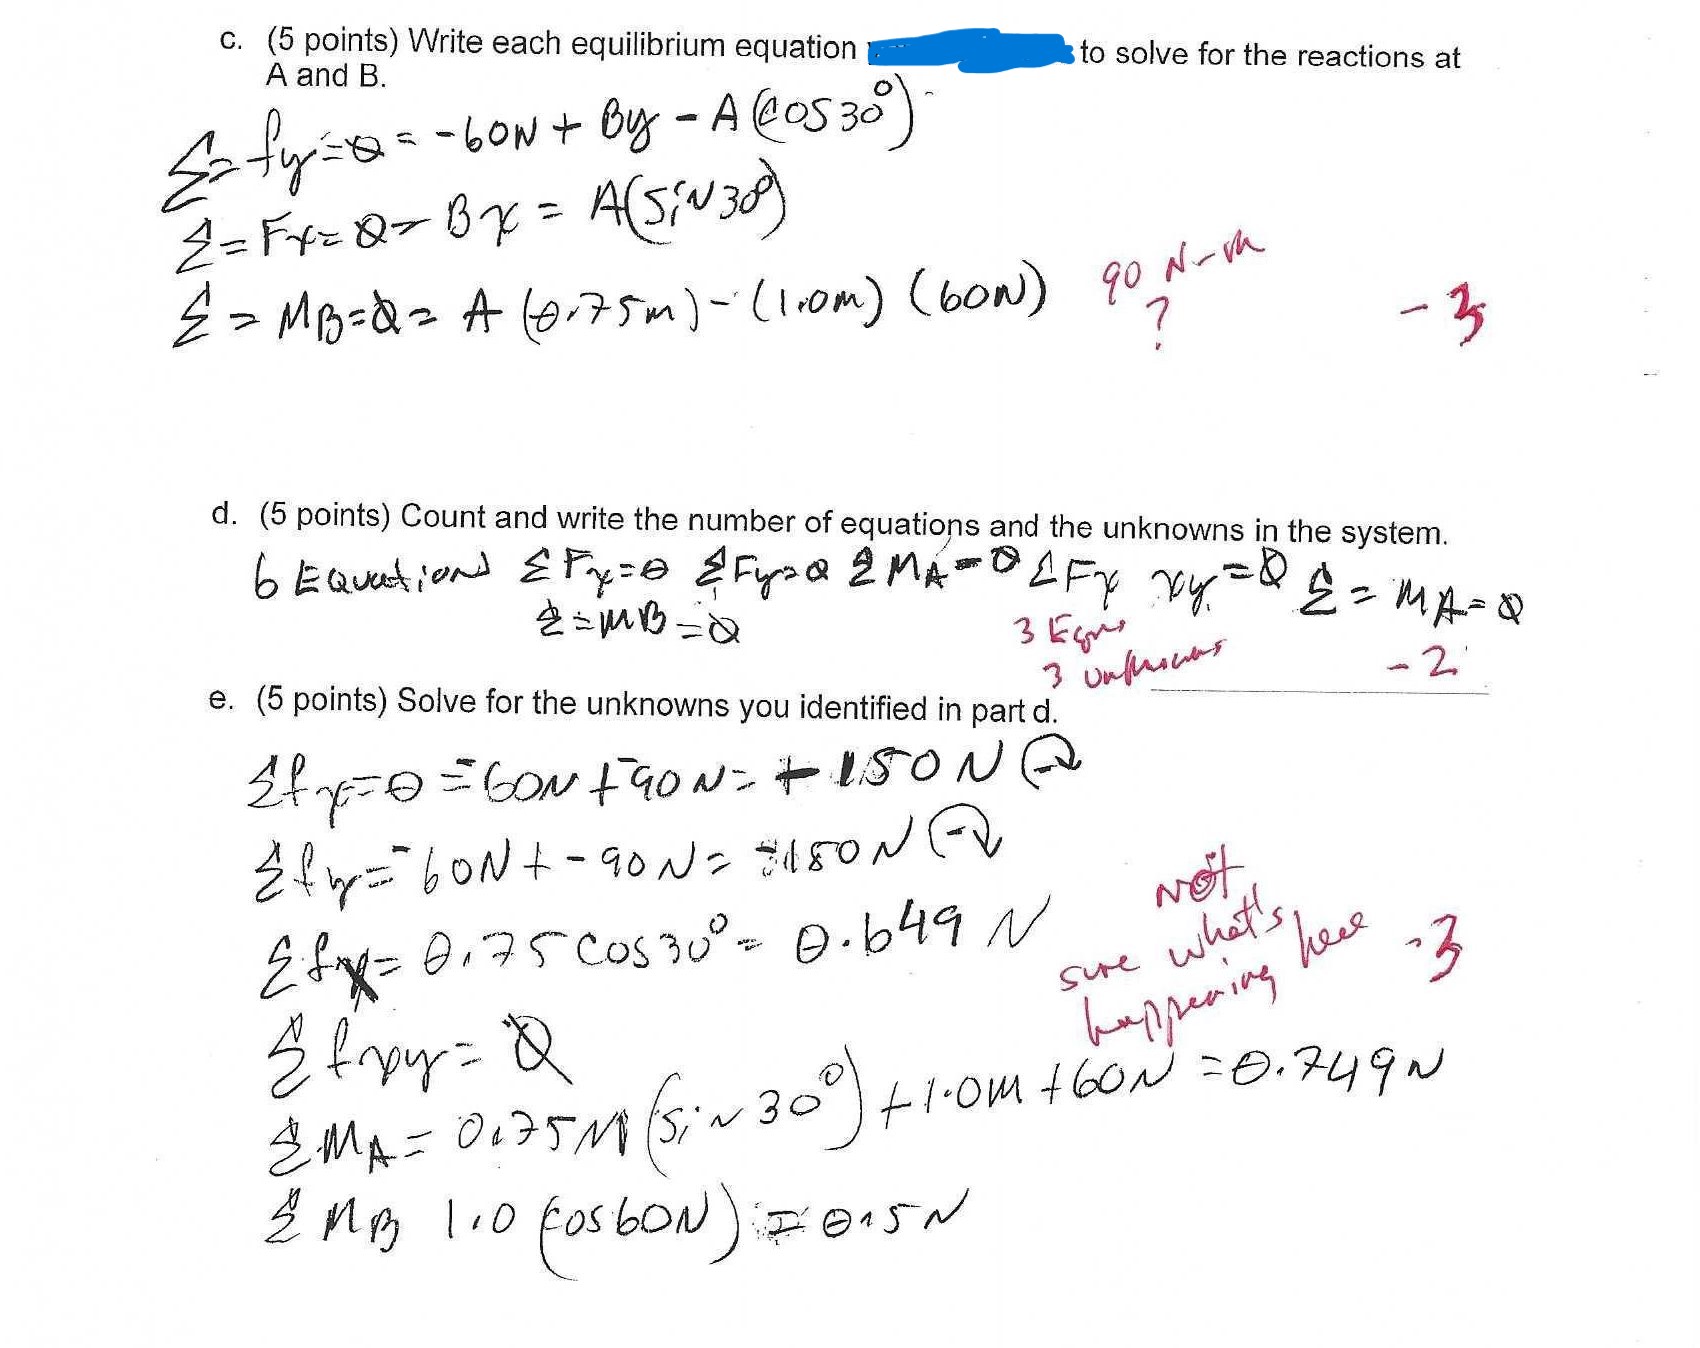 c. (5 points) Write each equilibrium equation to solve for the reactions at
A and B.
Σ= fy=0 = -60N + By - A (COS 30°)
Σ = Fx = 0 = Bx = A(SiN 30°)
Σ = MB=0= A (0.75m) - (1.0m) (60N)
90 N-m
?
-3
d. (5 points) Count and write the number of equations and the unknowns in the system.
6 Equations ΣFx=0 ΣFy=0 ΣMA=0 ΣFx xy=0 Σ = MA=0
Σ=MB=0
3 Eqns
3 unknowns
-2
e. (5 points) Solve for the unknowns you identified in part d.
Σfx=0 = -60N + -90N = +150N
Σfy= -60N + -90N = -150N
Σfx= 0.75 COS 30° = 0.649 N
Not
sure what's
happening here
-3
Σfxy= 0
ΣMA = 0.75M (SiN 30°) + 1.0M + 60N = 0.749N
ΣMB 1.0 (cos 60N) = 0.5N